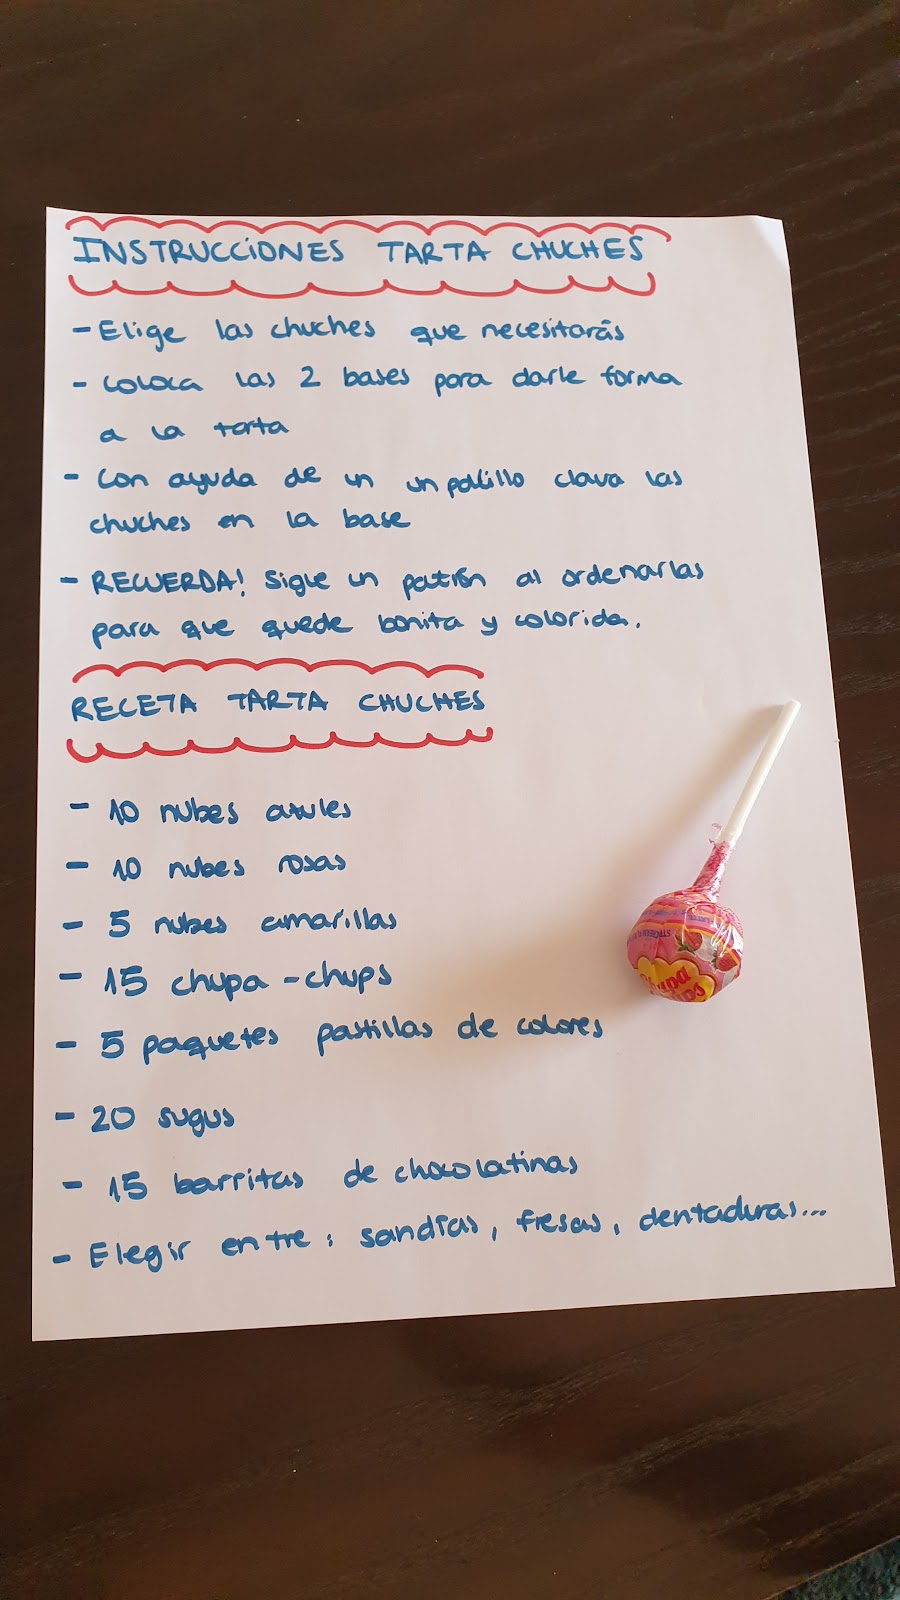 INSTRUCCIONES TARTA CHUCHES
- Elige las chuches que necesitarás
- Coloca las 2 bases para darle forma
a la tarta
- Con ayuda de un un palillo clava las
chuches en la base
- RECUERDA! Sigue un patrón al ordenarlas
para que quede bonita y colorida.
RECETA TARTA CHUCHES
- 10 nubes azules
- 10 nubes rosas
- 5 nubes amarillas
- 15 chupa-chups
- 5 paquetes pastillas de colores
- 20 sugus
- 15 barritas de chocolatinas
- Elegir entre: sandías, fresas, dentaduras...
Chupa
Chups